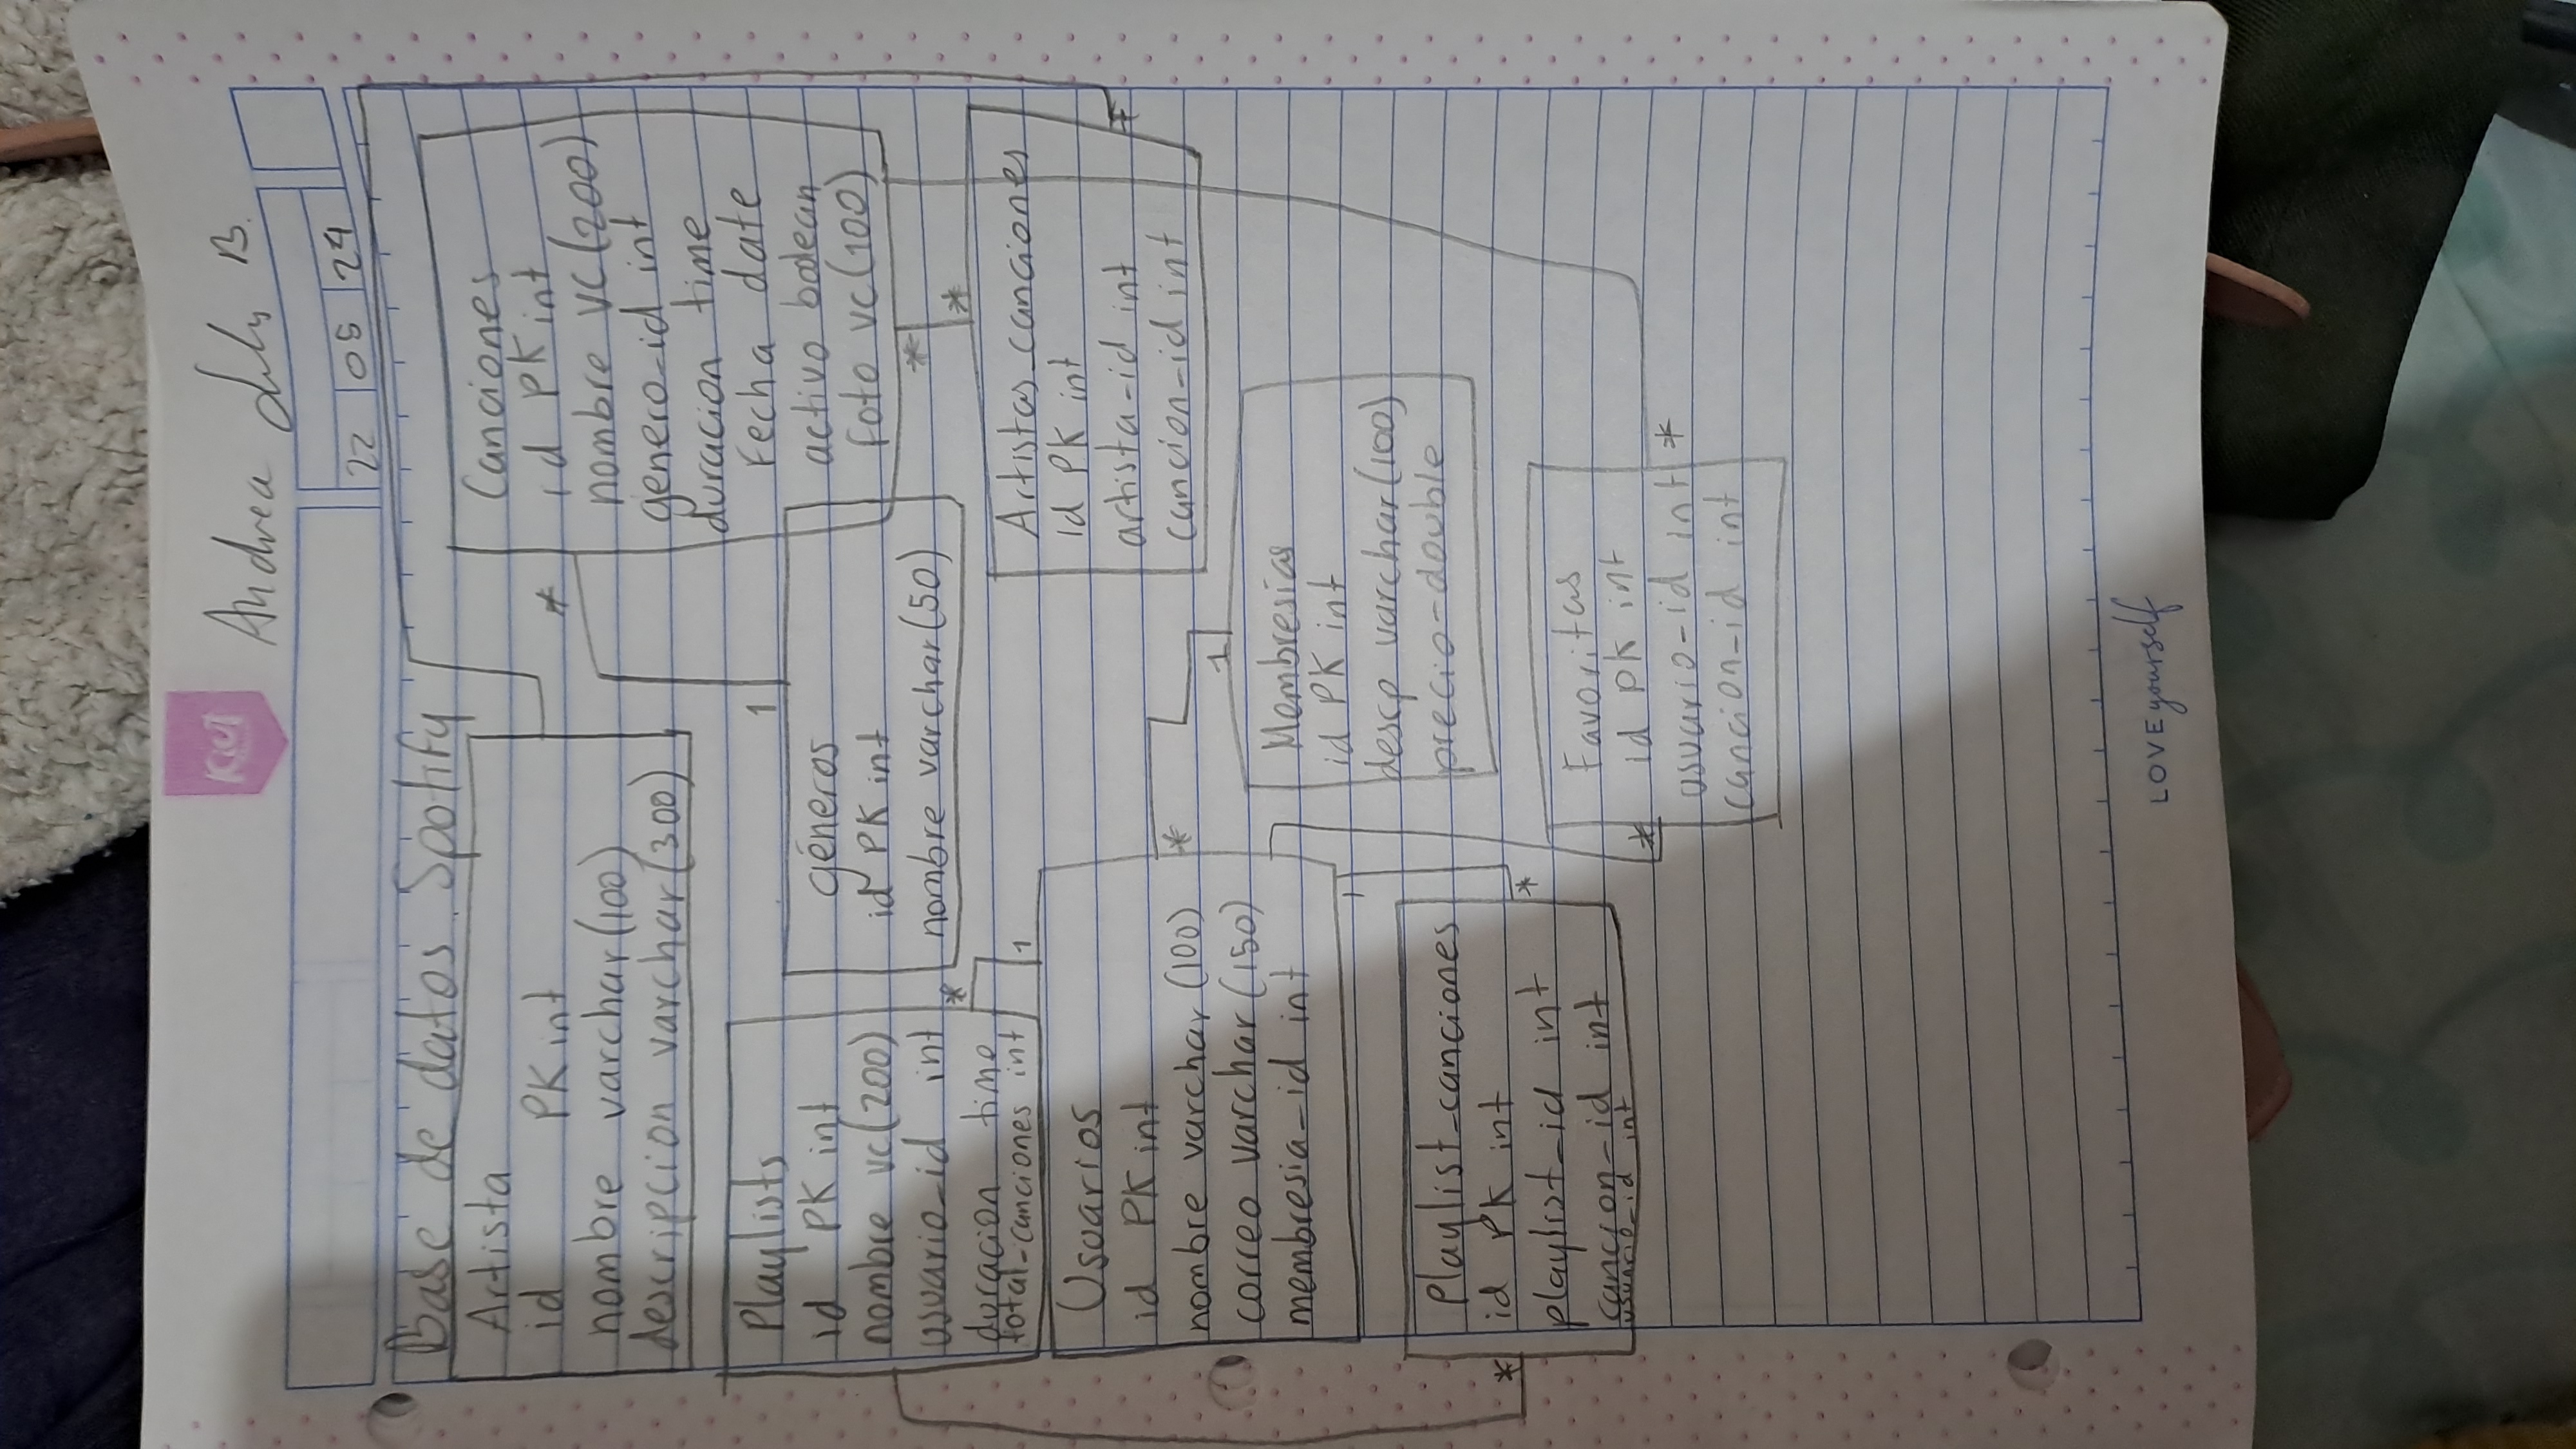 Kiut
Andrea B.
22 05 24
Base de datos Spotify
Artista
id PK int
nombre varchar(100)
descripcion varchar(300)
Canciones
id PK int
nombre vc(200)
genero_id int
duracion time
Fecha date
activo bolean
foto vc(100)
*
1
Playlists
id PK int
nombre vc(200)
usuario_id int
duracion time
total_canciones int
*
1
géneros
id PK int
nombre varchar(50)
*
*
Artistas_canciones
id PK int
artista-id int
cancion-id int
*
Usuarios
id PK int
nombre varchar(100)
correo varchar(150)
membresia-id int
*
1
1
Membresias
id PK int
descp varchar(100)
precio-double
Playlist_canciones
id PK int
playlist_id int
cancion-id int
usuario_id int
*
*
Favoritas
id PK int
usuario-id int
cancion-id int
*
*
LOVE yourself